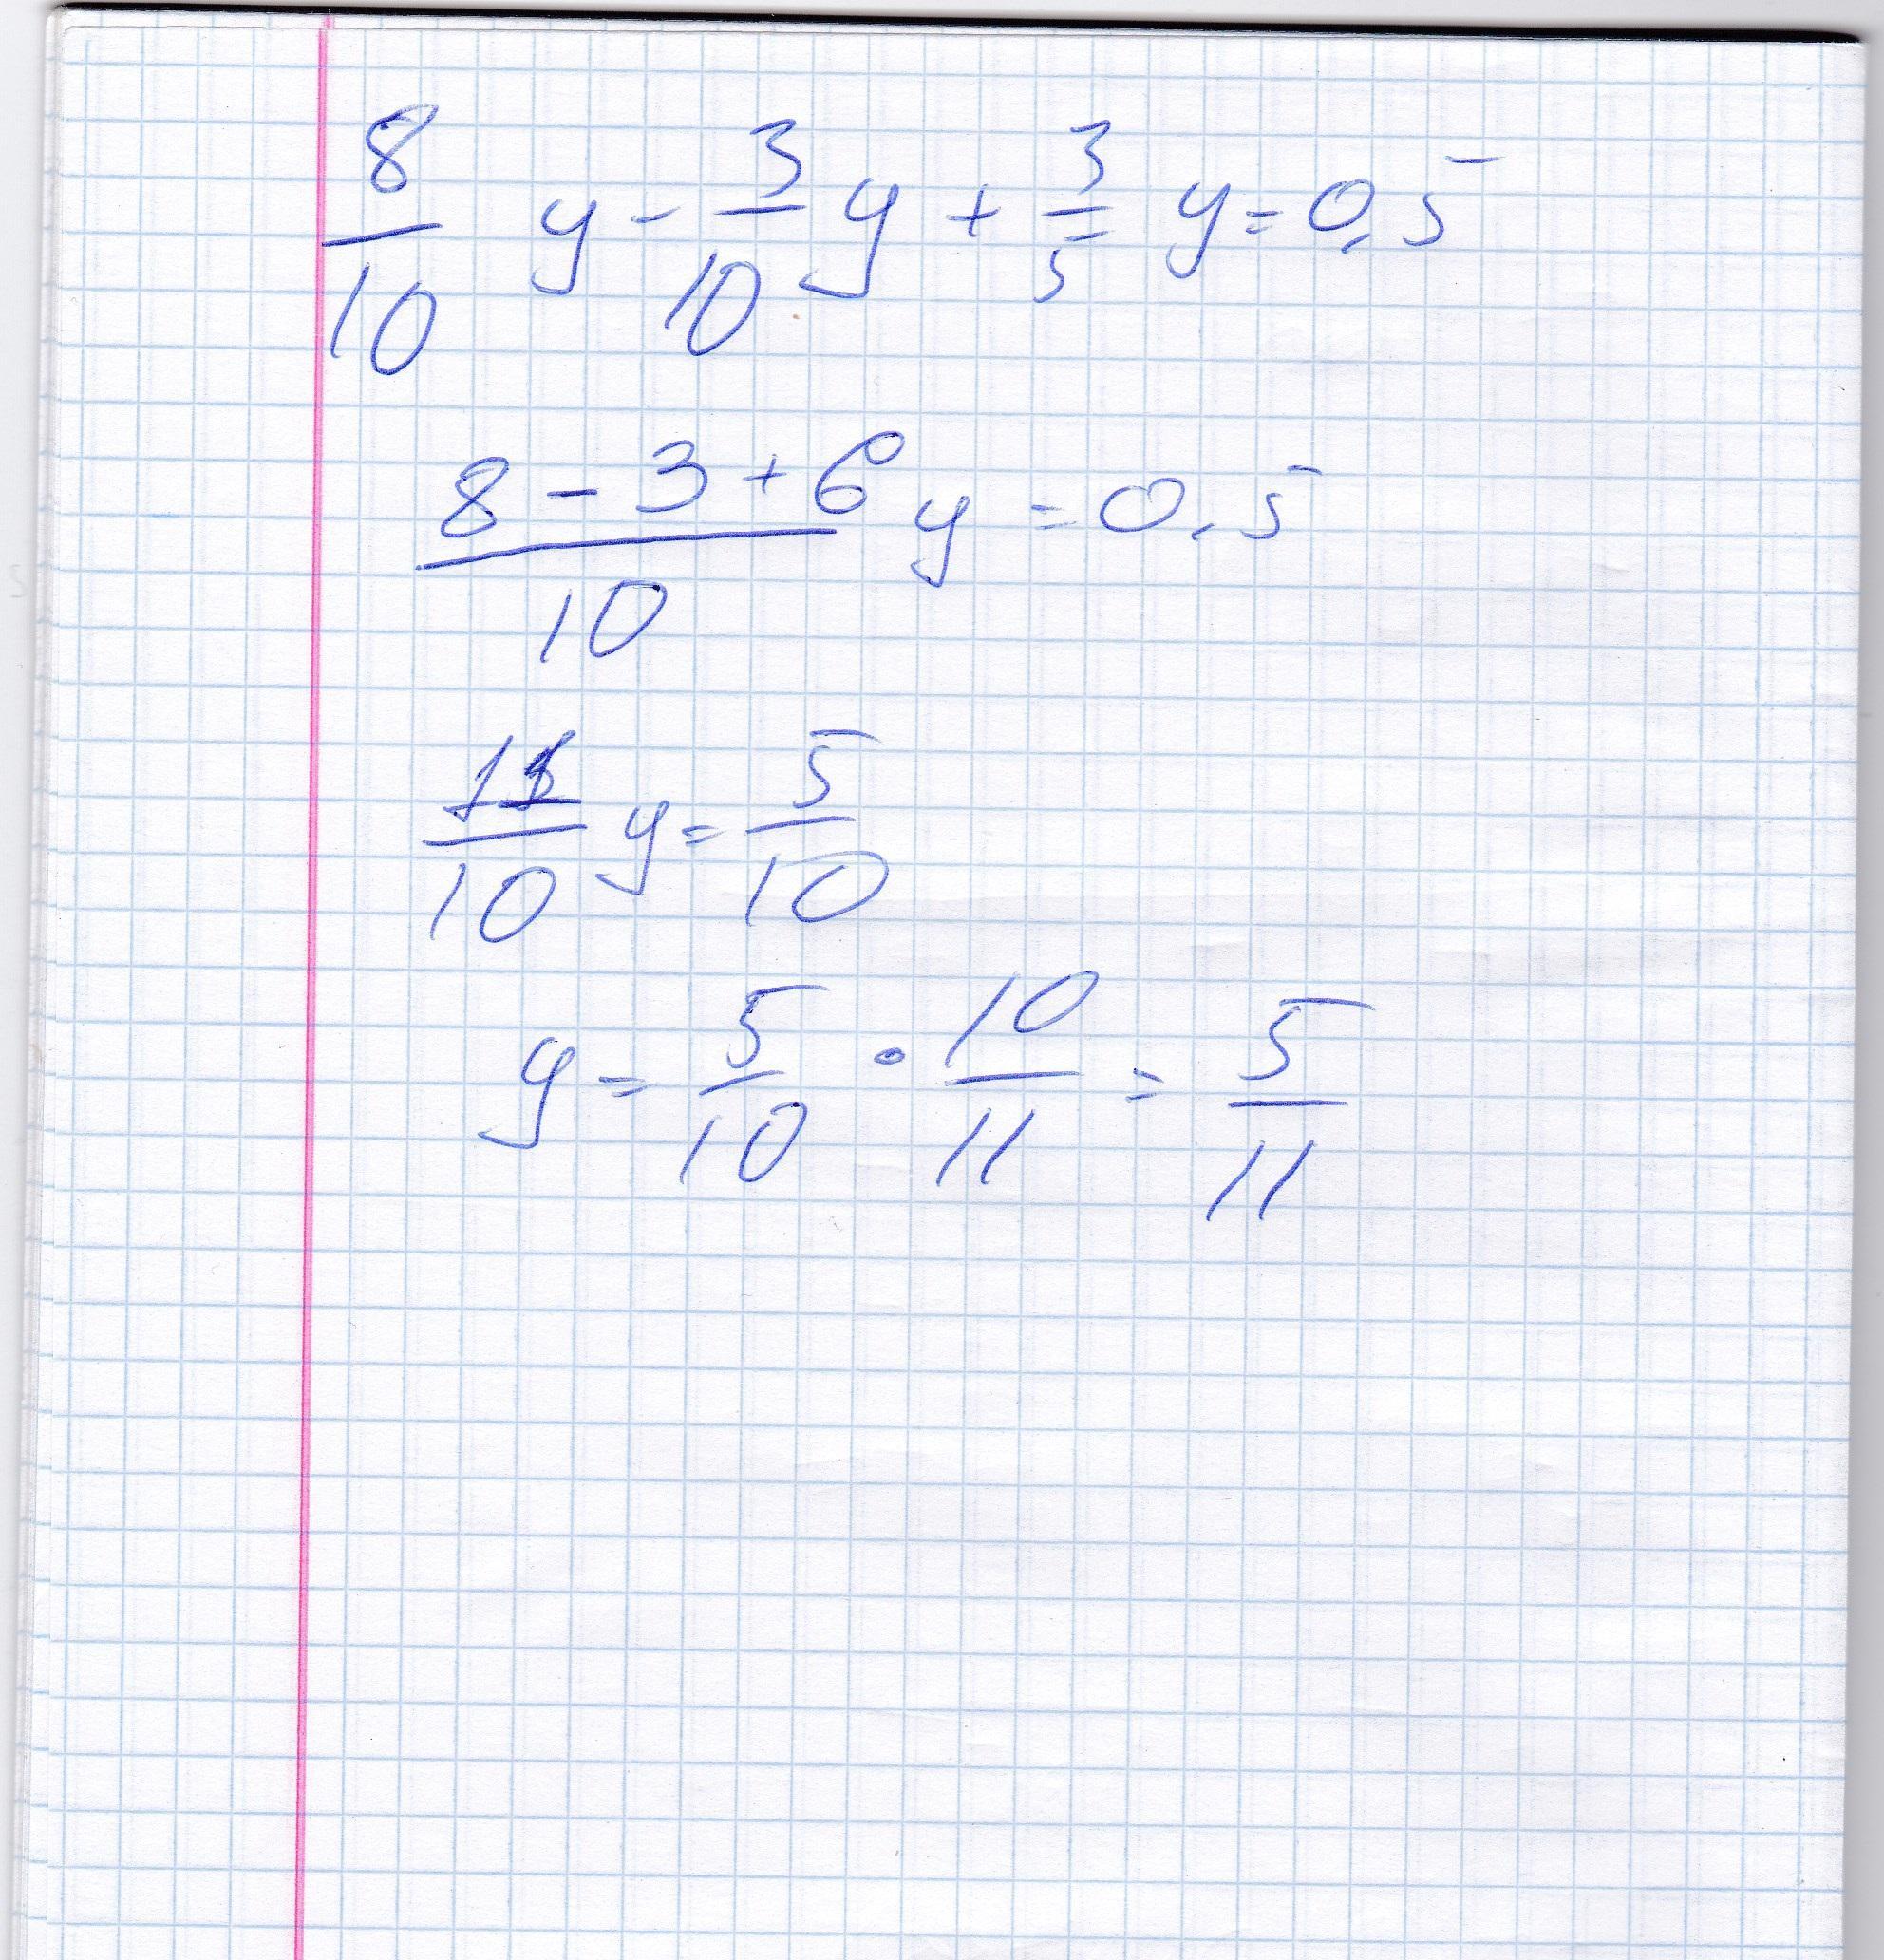 8/10 y - 3/10 y + 3/5 y = 0,5
(8 - 3 + 6)/10 y = 0,5
11/10 y = 5/10
y = 5/10 · 10/11 = 5/11